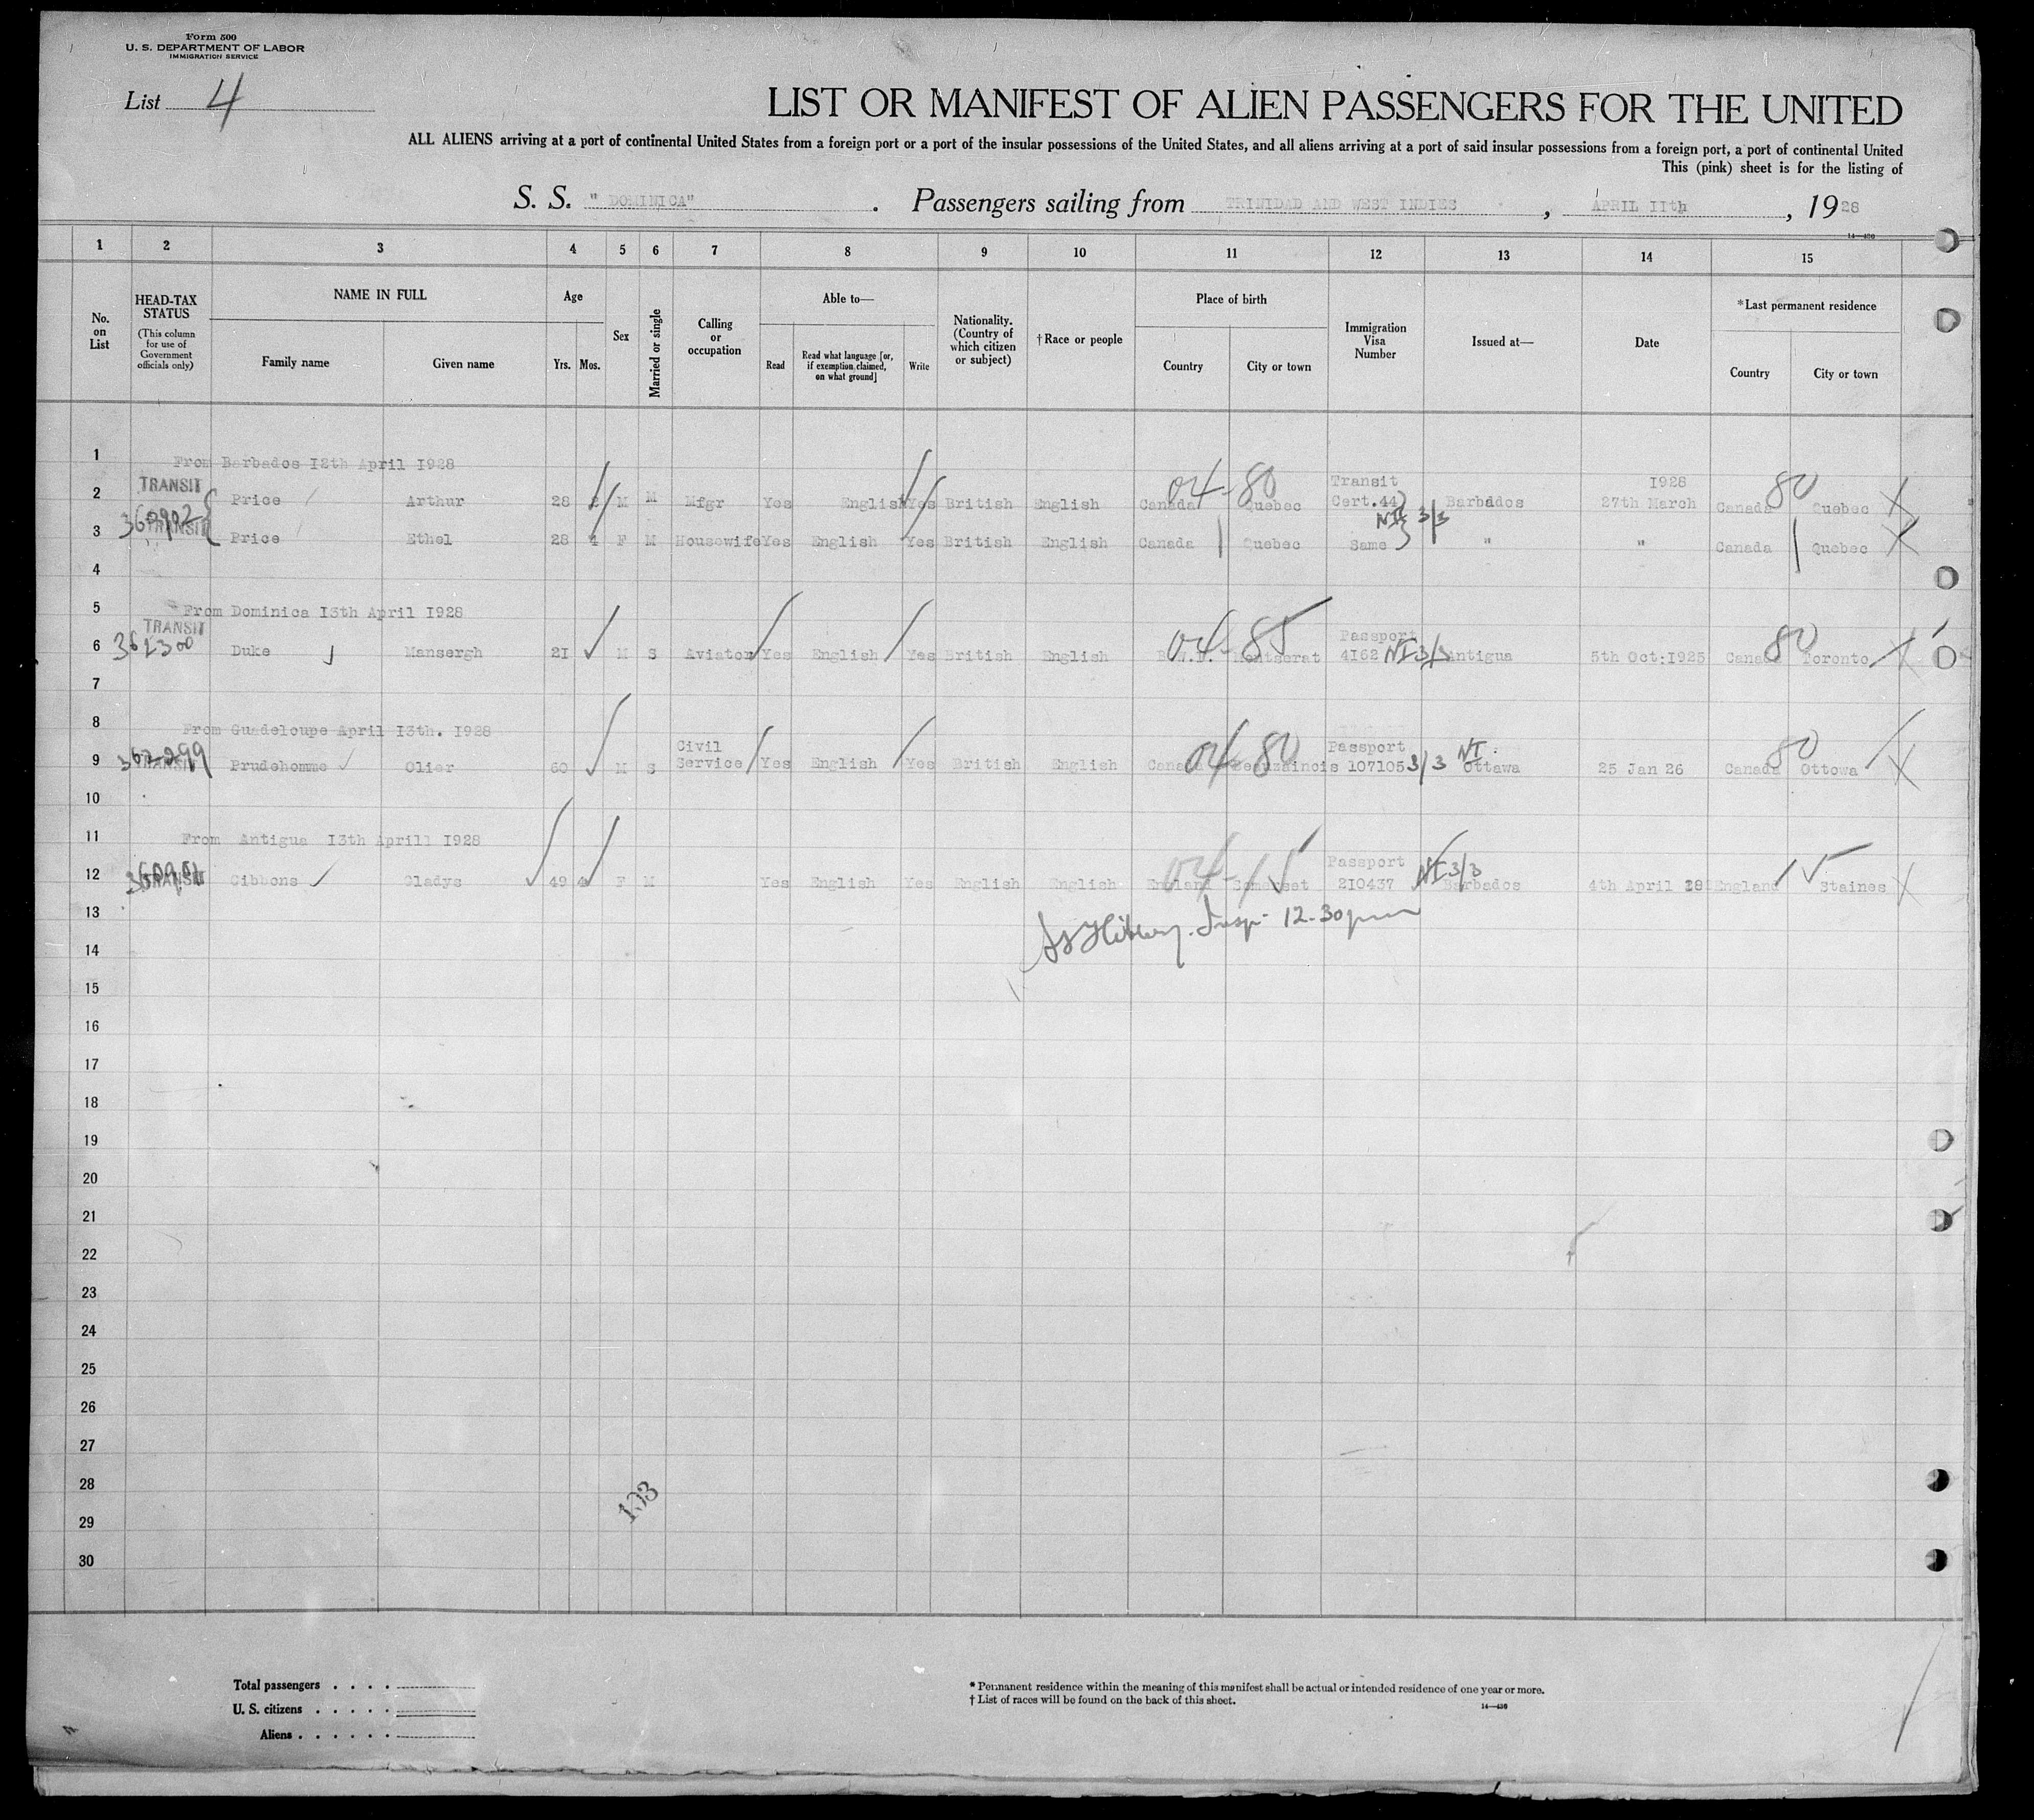 Form 500
U. S. DEPARTMENT OF LABOR
IMMIGRATION SERVICE
List 4
LIST OR MANIFEST OF ALIEN PASSENGERS FOR THE UNITED
ALL ALIENS arriving at a port of continental United States from a foreign port or a port of the insular possessions of the United States, and all aliens arriving at a port of said insular possessions from a foreign port, a port of continental United
This (pink) sheet is for the listing of
S. S. "DOMINICA". Passengers sailing from TRINIDAD AND WEST INDIES, APRIL IIth, 1928
14—430
1 2 3 4 5 6 7 8 9 10 11 12 13 14 15
No. on List
HEAD-TAX STATUS
(This column for use of Government officials only)
NAME IN FULL
Family name Given name
Age
Yrs. Mos.
Sex
Married or single
Calling or occupation
Able to—
Read
Read what language [or, if exemption claimed, on what ground]
Write
Nationality. (Country of which citizen or subject)
†Race or people
Place of birth
Country City or town
Immigration Visa Number
Issued at—
Date
*Last permanent residence
Country City or town
1 From Barbados I2th April I928
TRANSIT Transit I928
2 Price Arthur 28 M M Mfgr Yes English Yes British English Canada 04-80 Quebec Cert.44 Barbados 27th March Canada 80 Quebec
TRANSIT NI 3/3
3 Price Ethel 28 4 F M Housewife Yes English Yes British English Canada Quebec Same " " Canada Quebec
4
5 From Dominica I3th April I928
TRANSIT Passport
6 362300 Duke Mansergh 2I M S Aviator Yes English Yes British English 04-85 Montserat 4I62 NI 3/3 Antigua 5th Oct:I925 Canada 80 Toronto
7
8 From Guadeloupe April I3th. I928
Civil Passport NI
9 362299 TRANSIT Prudehomme Olier 60 M S Service Yes English Yes British English Canada 04-80 107105 3/3 Ottawa 25 Jan 26 Canada 80 Ottowa
10
11 From Antigua I3th Aprill I928
Passport NI 3/3
12 TRANSIT Gibbons Gladys 49 F M Yes English Yes English English England 04-15 Somerset 2I0437 Barbados 4th April 28 England 15 Staines
13 Insp. 12-30 pm
14
15
16
17
18
19
20
21
22
23
24
25
26
27
28
29
30
103
Total passengers
U. S. citizens
Aliens
* Permanent residence within the meaning of this manifest shall be actual or intended residence of one year or more.
† List of races will be found on the back of this sheet.
14—430